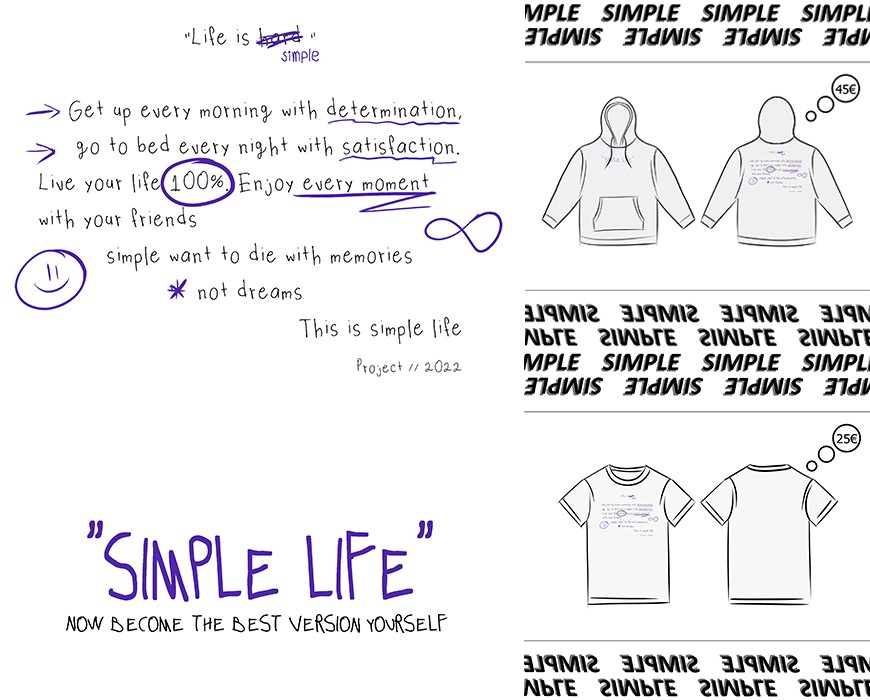 "Life is hard "
simple
Get up every morning with determination,
go to bed every night with satisfaction.
Live your life 100%. Enjoy every moment
with your friends
simple want to die with memories
* not dreams
This is simple life
Project // 2022
"SIMPLE LIFE"
NOW BECOME THE BEST VERSION YOURSELF
MPLE SIMPLE SIMPLE SIMPLE
SIMPLE SIMPLE SIMPLE SIMPLE
45€
"SIMPLE LIFE"
SIMPLE SIMPLE SIMPLE SIMPL
IMPLE SIMPLE SIMPLE SIMPLE
MPLE SIMPLE SIMPLE SIMPL
SIMPLE SIMPLE SIMPLE SIMPLE
25€
SIMPLE SIMPLE SIMPLE SIMPL
IMPLE SIMPLE SIMPLE SIMPLE